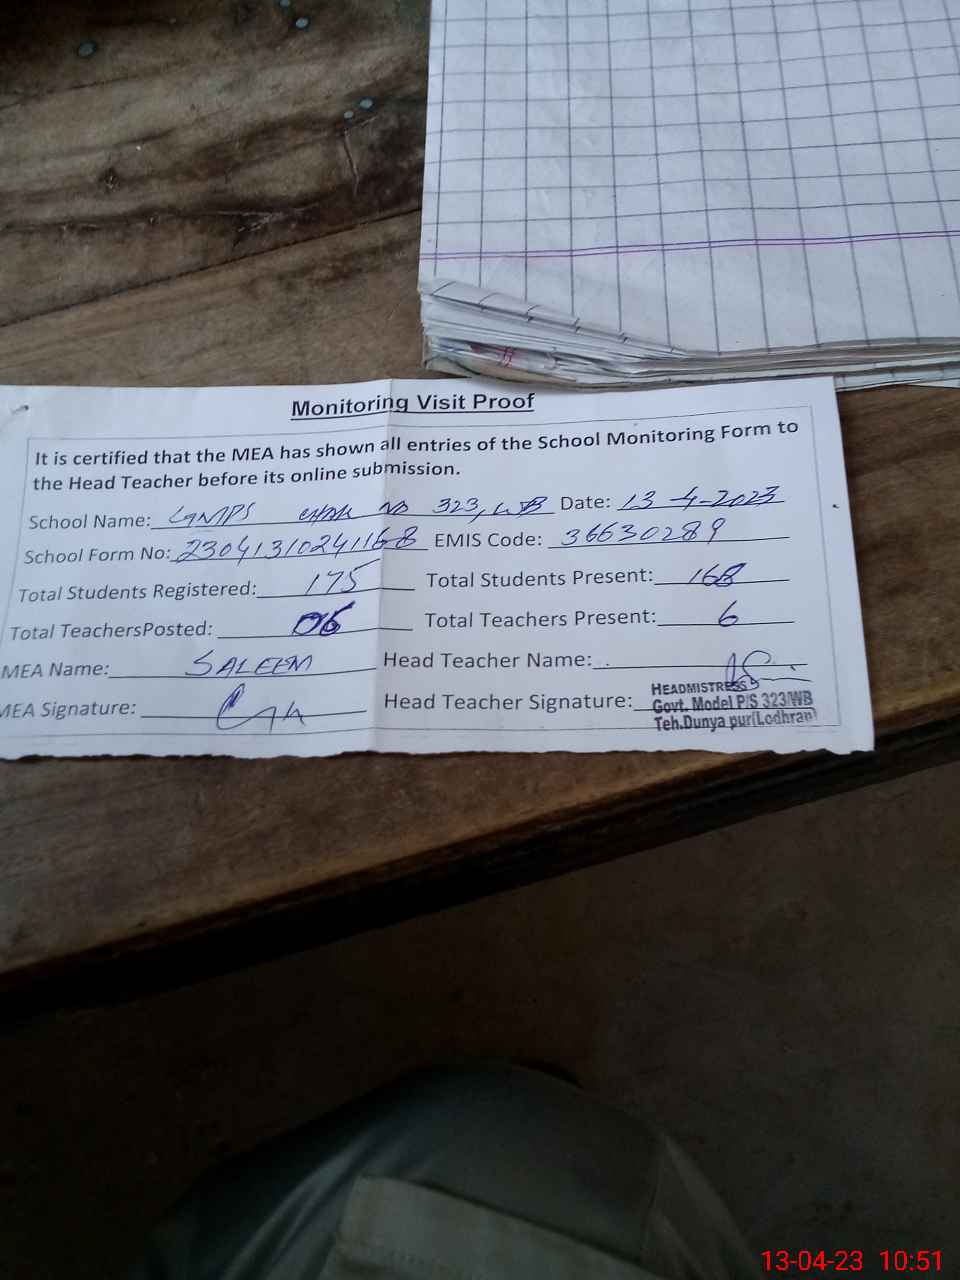 Monitoring Visit Proof
It is certified that the MEA has shown all entries of the School Monitoring Form to
the Head Teacher before its online submission.
School Name: GMPS CHAK NO 323, WB Date: 13-4-2023
School Form No: 23041310241168 EMIS Code: 36630289
Total Students Registered: 175 Total Students Present: 168
Total TeachersPosted: 06 Total Teachers Present: 6
MEA Name: SALEEM Head Teacher Name:
MEA Signature: Head Teacher Signature:
HEADMISTRESS
Govt. Model P/S 323/WB
Teh.Dunya pur(Lodhran)
13-04-23 10:51